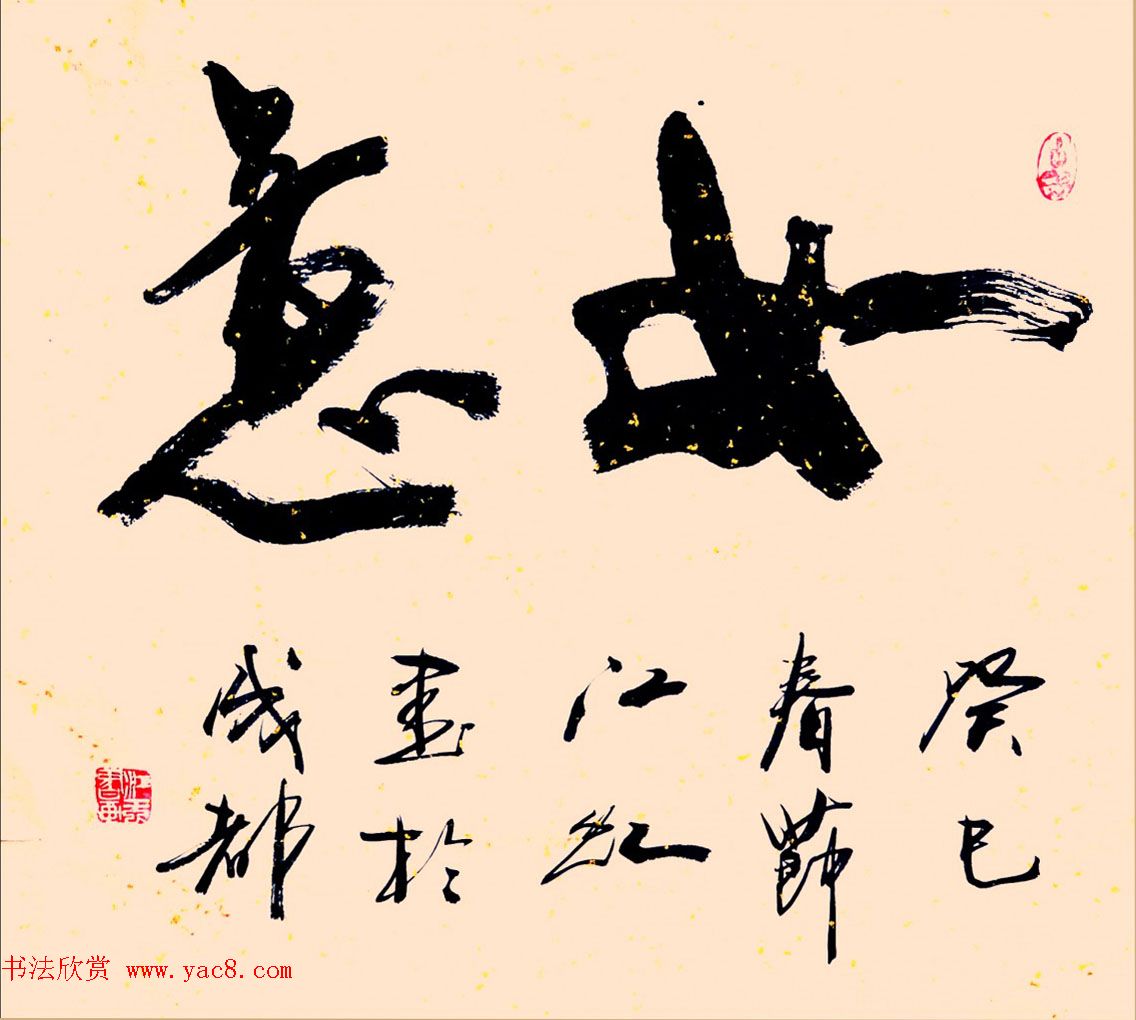 如意
癸巳
春節
江红
書於
成都
书法欣赏 www.yac8.com